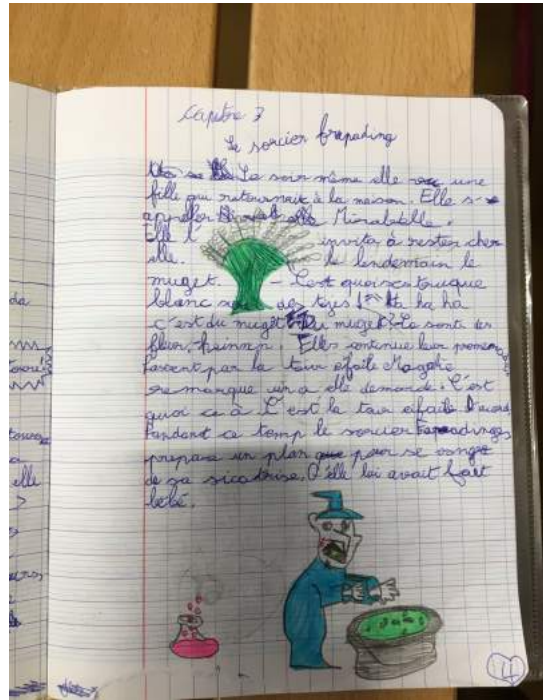 Capitre 3
Le sorcier frapading
Le soir même elle une
fille qui retournait à la maison. Elle s'
appeller Mirabelle.
Elle l' invita à rester cher
elle. le lendemain le
muget. - C'est quoi ses truque
blanc sur des tiges ! Ha ha
c'est du muget Du muget ? La sorte de
fleur, heinnn. Elles continue leur promen
Pascent par la tour efaile Magalie
remarque un a elle demande. C'est
quoi ca à C'est la tour eifaile D'acord
Pandant ce temp le sorcier
prepara un plan pour se vanger
de sa sicatrise. Q'elle lui avait fait
bébé.
da
elle
4